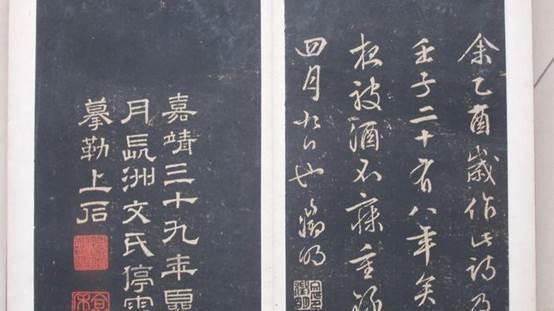 余乙酉歲作此詩及
壬子二十有八年矣
夜被酒不寐重錄
四月九日也徵明
嘉靖三十九年夏
月長洲文氏停雲
摹勒上石